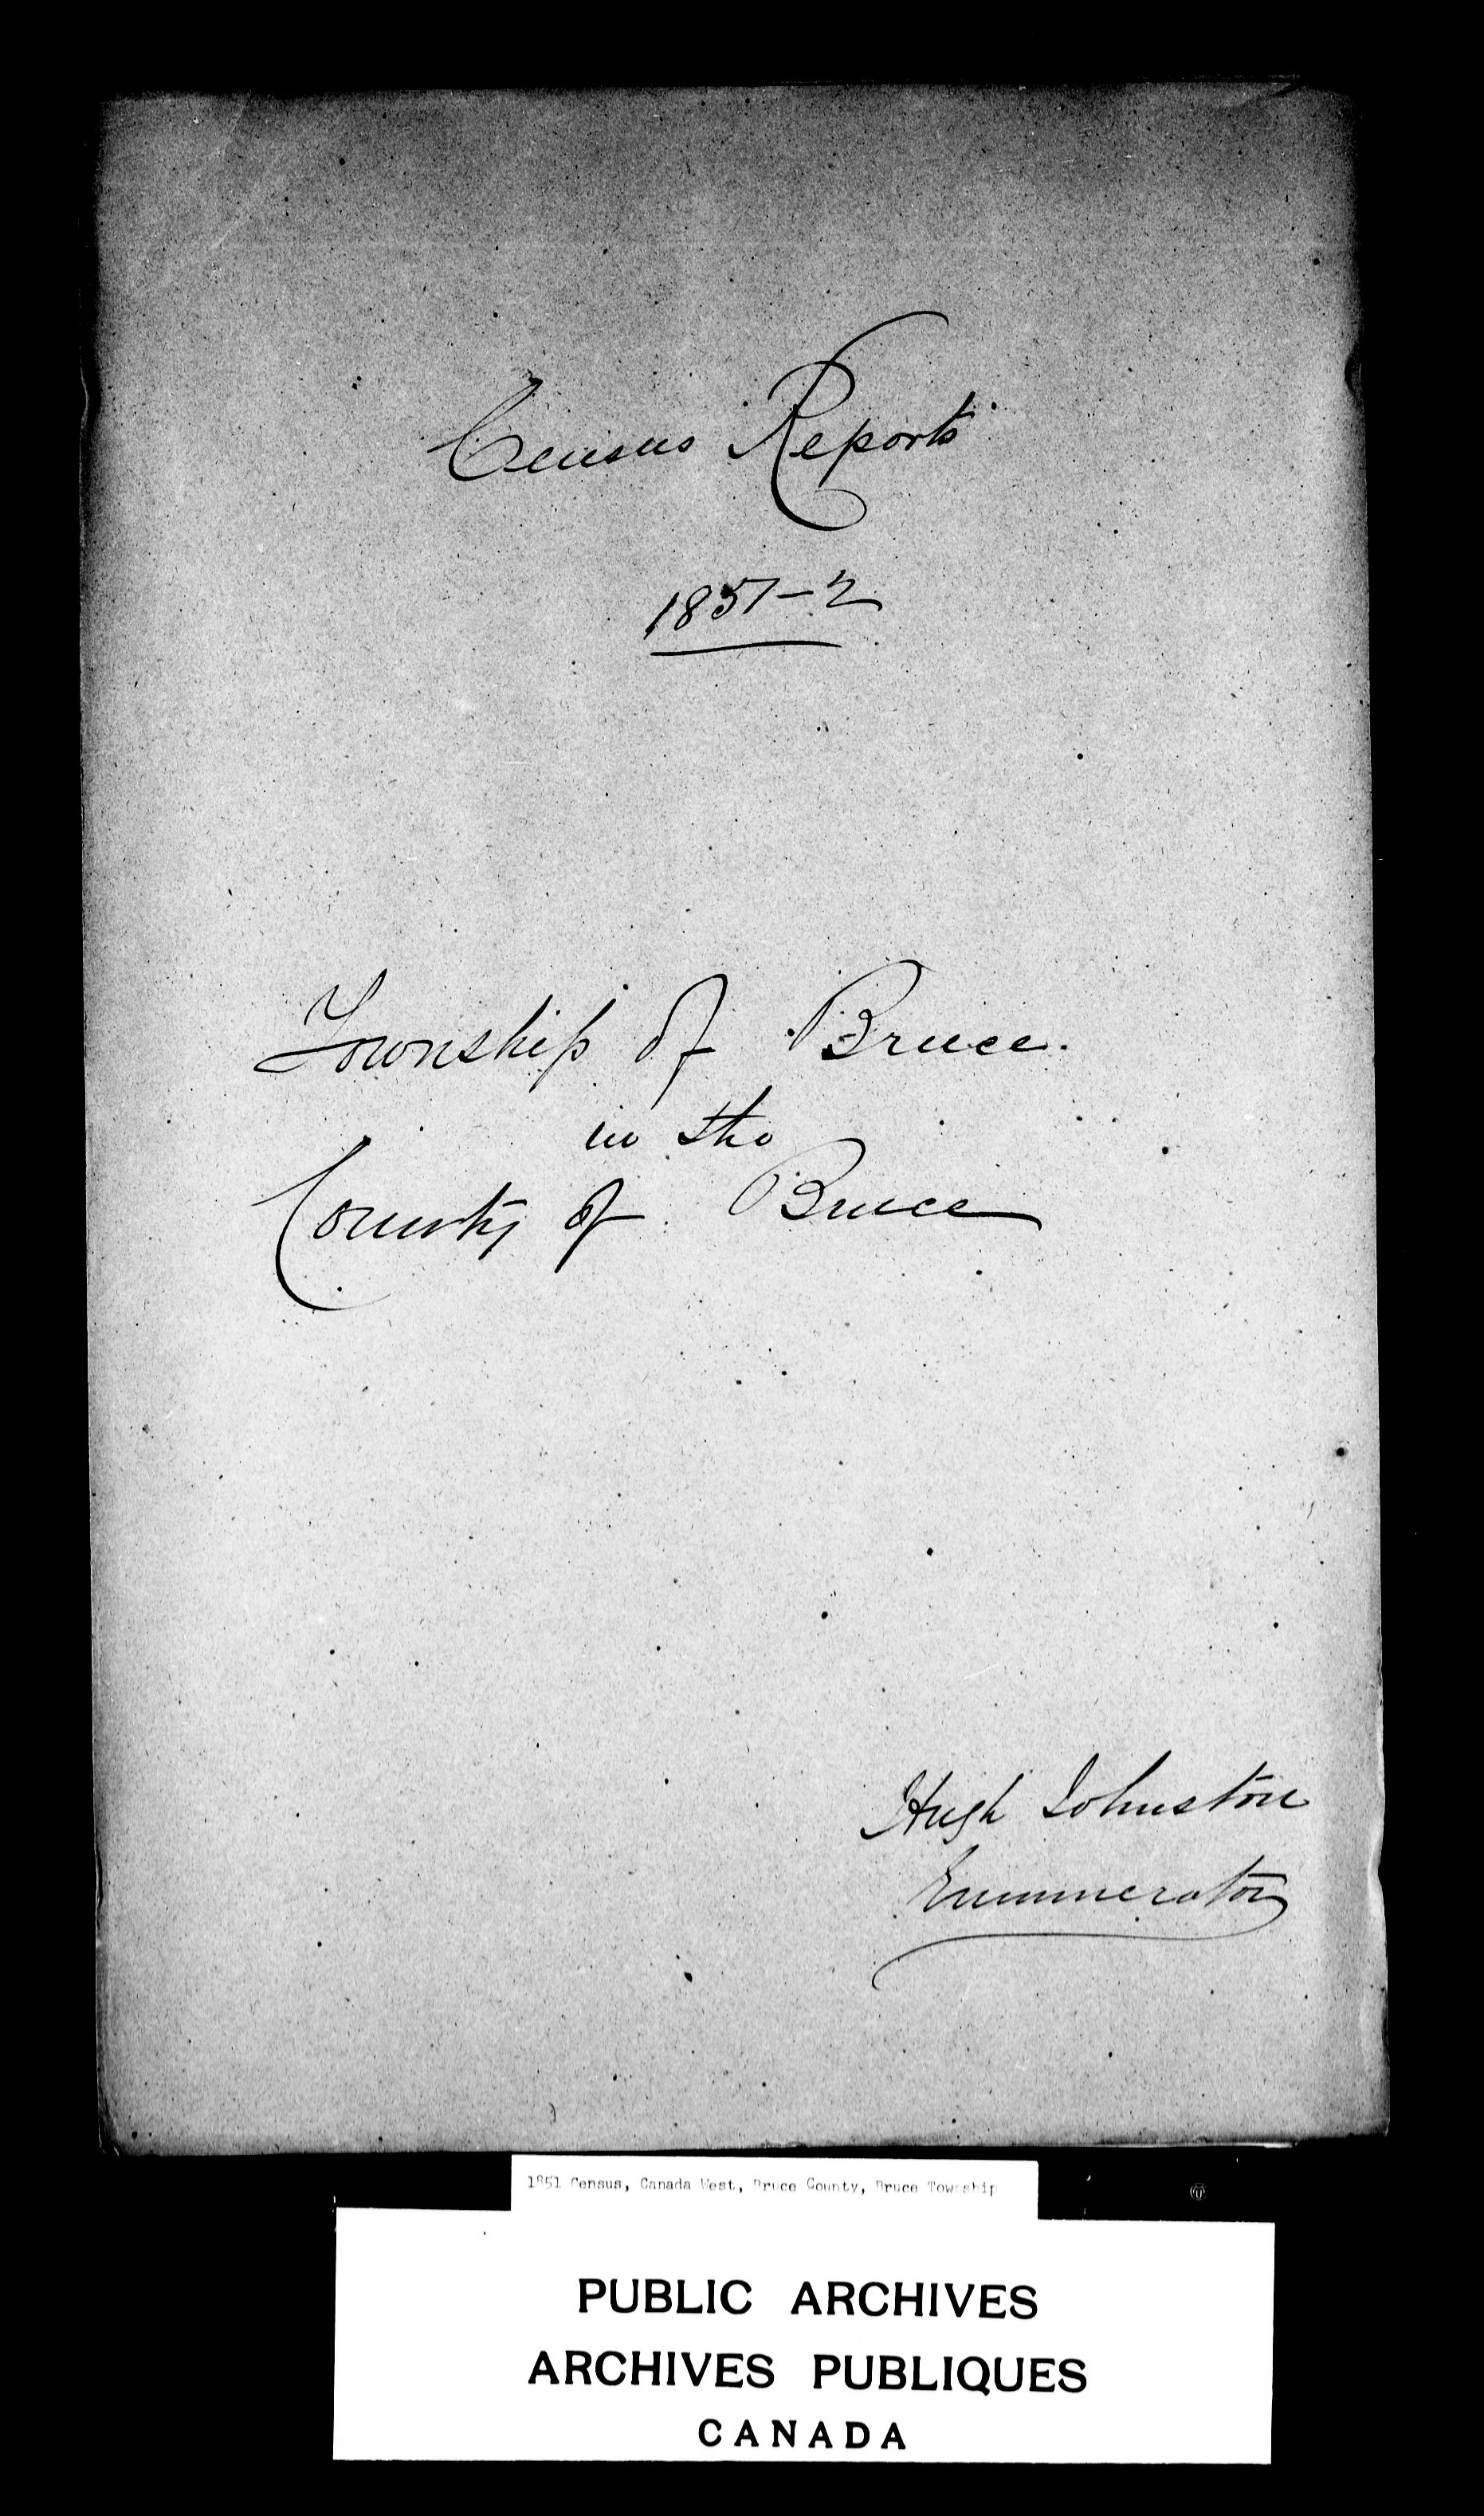 Census Reports
1851-2
Township of Bruce.
in the
County of Bruce
Hugh Johnston
Enummerator
1851 Census, Canada West, Bruce County, Bruce Township
PUBLIC ARCHIVES
ARCHIVES PUBLIQUES
CANADA